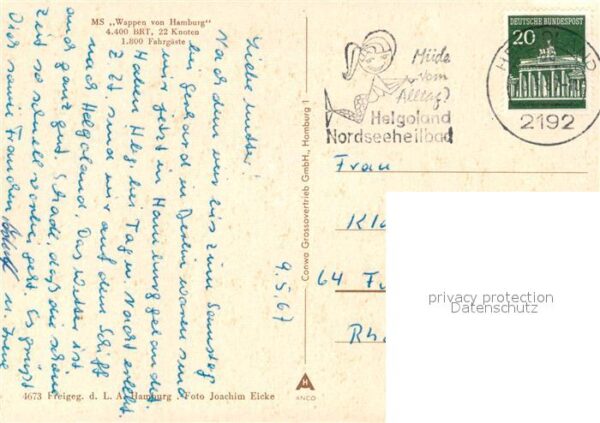 MS „Wappen von Hamburg"
4.400 BRT, 22 Knoten
1.800 Fahrgäste
Liebe Mutter!
Nachdem wir bis zum Samstag
bei Gerhard in Berlin waren sind
wir jetzt in Hamburg gelandet.
Haben Hbg. bei Tag u. Nacht erlebt.
Z. Zt. sind wir auf dem Schiff
nach Helgoland. Das Wetter ist
auch ganz gut. Schade, daß die schöne
Zeit so schnell vorbei geht. Es grüßt
Dich sowie
u. Irene
9.5.67
4673 Freigeg. d. L. A. Hamburg . Foto Joachim Eicke
Conwa Grossovertrieb GmbH., Hamburg 1
H
ANCO
Müde
vom
Alltag?
Helgoland
Nordseeheilbad
DEUTSCHE BUNDESPOST
20
2192
Frau
64
privacy protection
Datenschutz